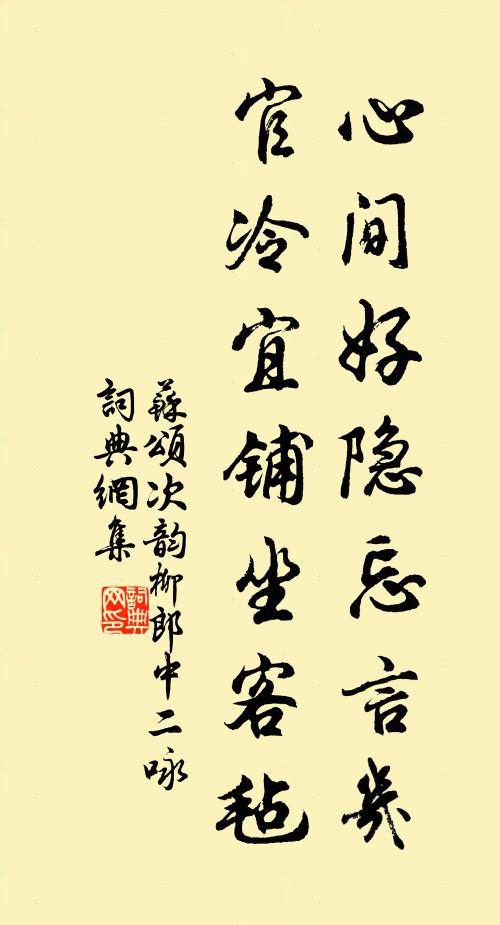 心间好隐忘言几
官冷宜铺坐客毡
蘇頌次韵柳郎中二咏
詞典網集
詞典网印